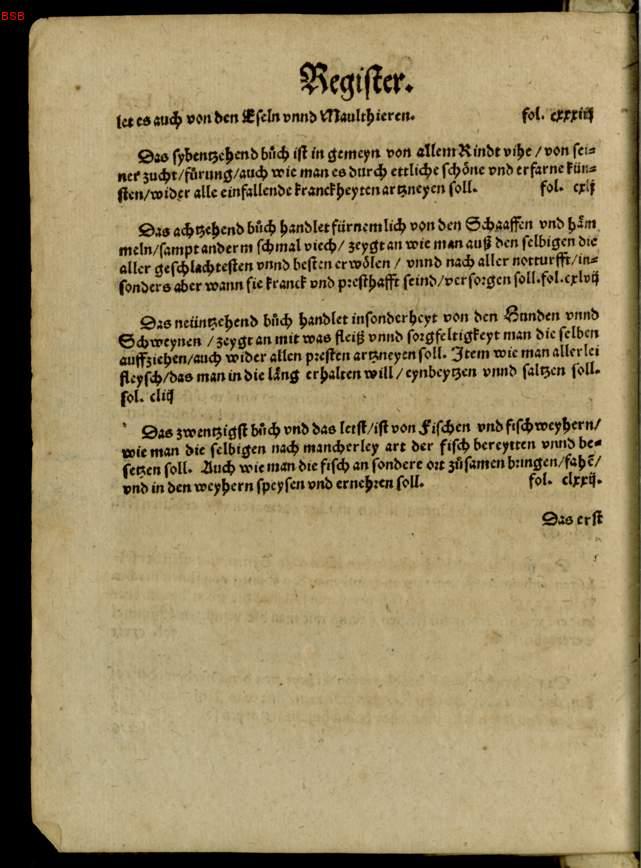 BSB
Register.
let es auch von den Eseln vnnd Maulthieren. fol. cxxxiiij
Das sybentzehend bůch ist in gemeyn von allem Rindt vihe / von sei-
ner zucht/fürung/auch wie man es durch ettliche schöne vnd erfarne kün-
sten/wider alle einfallende kranckheyten artzneyen soll. fol. cxlj
Das achtzehend bůch handlet fürnemlich von den Schaaffen vnd häm
meln/sampt anderm schmal viech/ zeygt an wie man auß den selbigen die
aller geschlachtesten vnnd besten erwölen / vnnd nach aller notturfft/in-
sonders aber wann sie kranck vnd presthafft seind/versorgen soll.fol.cxlvij
Das neüntzehend bůch handlet insonderheyt von den Hunden vnnd
Schweynen / zeygt an mit was fleiß vnnd sorgfeltigkeyt man die selben
auffziehen/auch wider allen presten artzneyen soll. Item wie man allerlei
fleysch/das man in die läng erhalten will / eynbeytzen vnnd saltzen soll.
fol. cliij
Das zwentzigst bůch vnd das letst/ist von Fischen vnd fischweyhern/
wie man die selbigen nach mancherley art der fisch bereytten vnnd be-
setzen soll. Auch wie man die fisch an sondere ort zůsamen bringen/fahẽ/
vnd in den weyhern speysen vnd ernehren soll. fol. clxxij.
Das erst